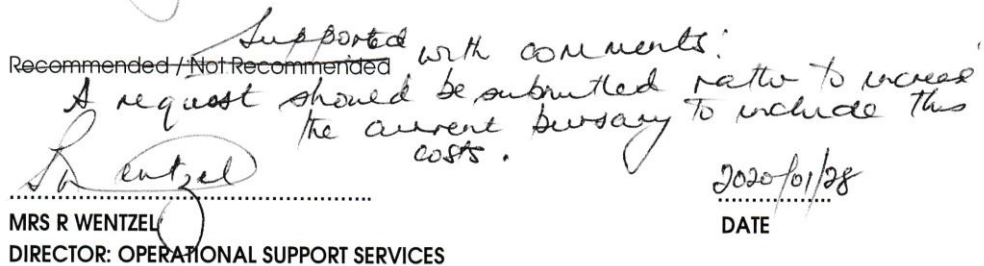 Supported with comments:
Recommended / Not Recommended
A request should be submitted rather to increase
the current bursary to include this
costs.
R Wentzel 2020/01/28
MRS R WENTZEL DATE
DIRECTOR: OPERATIONAL SUPPORT SERVICES